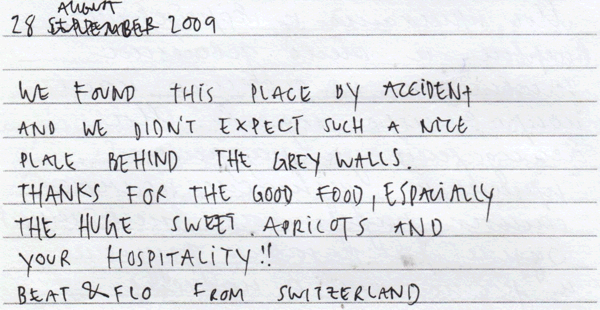 AUGUST
28 SEPTEMBER 2009
WE FOUND THIS PLACE BY ACCIDENT
AND WE DIDN'T EXPECT SUCH A NICE
PLACE BEHIND THE GREY WALLS.
THANKS FOR THE GOOD FOOD, ESPACIALLY
THE HUGE SWEET APRICOTS AND
YOUR HOSPITALITY!!
BEAT & FLO FROM SWITZERLAND